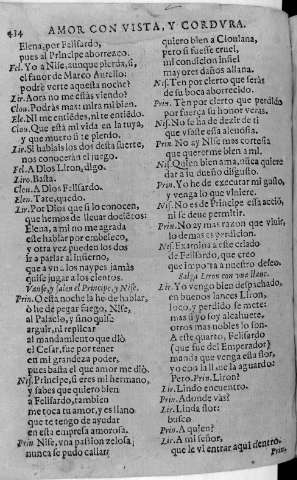 434 AMOR CON VISTA, Y CORDVRA.
Elena, por Felisardo,
pues al Principe aborrezco.
Fel. Yo a Nise, aunque pierda, si,
el fauor de Marco Aurelio.
podrè verte aquesta noche?
Lir. Aora no me estàs viendo?
Cleu. Podràs mas: mira mi bien.
Ele. Ni me entiēdes, ni te entiēdo.
Cleu. Que està mi vida en la tuya,
y que muero si te pierdo.
Lir. Si hablais los dos desta suerte,
nos conoceràn el juego.
Fel. A Dios Liron, digo.
Lir. Basta.
Cleu. A Dios Felisardo.
Elen. Tate, quedo.
Lir. Por Dios que si lo conocen,
que hemos de lleuar docietos:
Elena, a mi no me agrada
este hablar por embeleco,
y otra vez pueden los dos
ir a parlar al infierno,
que a vn los naypes jamàs
quise jugar a los cientos.
Vanse, y salen el Principe, y Nise.
Prin. O esta noche la ho de hablar,
ò he de pegar fuego, Nise,
al Palacio, y sino quise
arguir, ni replicar
al mandamiento que diò
el Cesar, fue por tener
en mi grandeza poder,
pues basta el que amor me diò.
Nis. Principe, si eres mi hermano,
y sabes que quiero bien
a Felisardo, tambien
me toca tu amor, y es llano
que te tengo de ayudar
en esta empresa amorosa.
Prin. Nise, vna passion zelosa
nunca se pudo callar:
quiero bien a Cloulana,
pero si fuesse cruel,
mi condicion infiel
mayores daños allana.
Nis. Ten por cierto que seràs
de su boca aborrecido.
Prin. Ten por cierto que perdido
por fuerça su honor veras.
Nis. No se ha de dezir de ti
que vsaste essa aleuosia.
Prin. No ay Nise mas cortesia
que quererme bien a mi.
Nis. Quien bien ama, nūca quiere
dar a su dueño disgusto.
Prin. Yo he de executar mi gusto,
y venga lo que viniere.
Nis. No es de Principe essa acciõ,
ni se deue permitir.
Prin. No ay mas razon que viuir,
lo demas es perdicion.
Nis. Examina a este criado
de Felisardo, que creo
que importa a nuestro deseo.
Salga Liron con vna llaue.
Lir. Yo vengo bien despachado,
en buenos lances Liron,
loco, y perdido se mete:
mas si yo soy alcahuete,
otros mas nobles lo son.
A este quarto, Felisardo
(que fue del Emperador)
manda que venga esta flor,
yo con la llaue la aguardo:
Pero. Prin. Liron?
Lir. Lindo encuentro.
Prin. Adonde vàs?
Lir. Linda flor:
busco
Prin. A quien?
Lir. A mi señor,
que le vi entrar aqui dentro.
Prin.